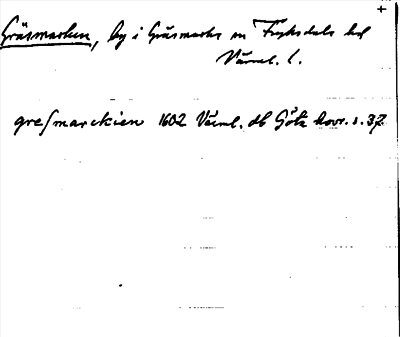 +
Gräsmarken, by i Gräsmarks sn Fryksdals hd
Värml. l.
gresmarckien 1602 Värml. db Göta hovr. s. 37.